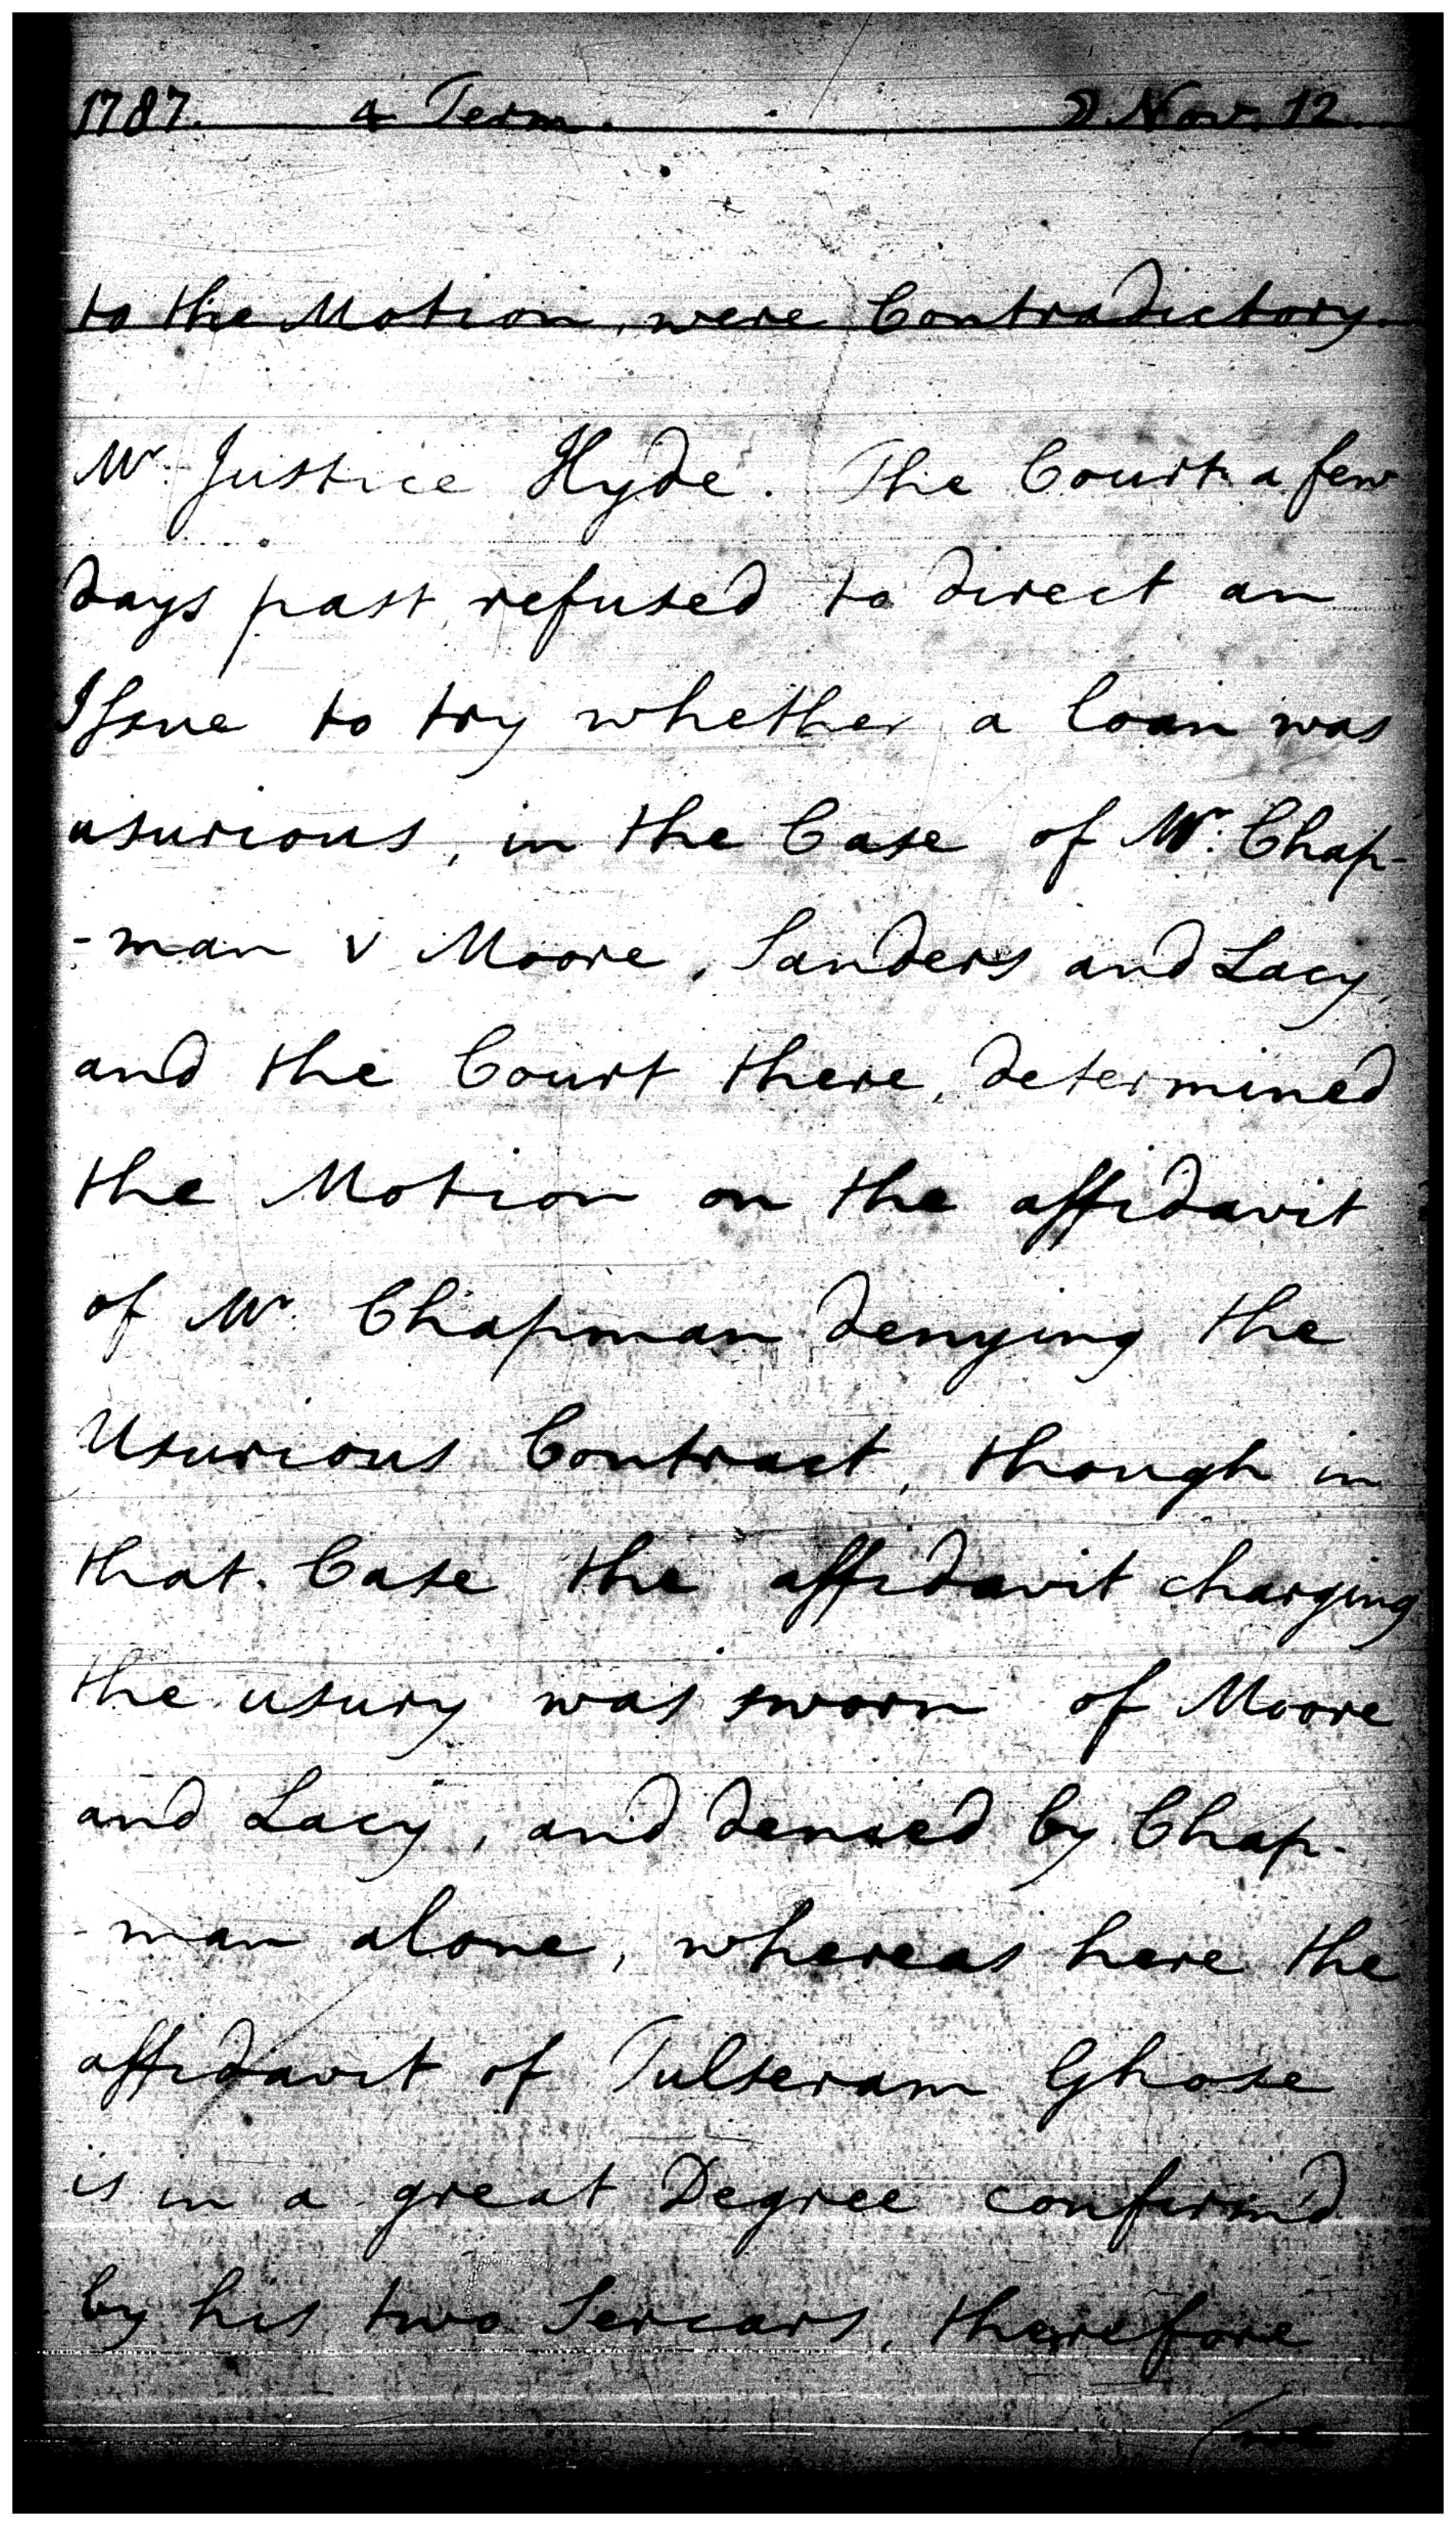 1787. 4 Term. ☽ Nov. 12.
to the Motion, were Contradictory.
Mr. Justice Hyde. The Court a few
days past refused to direct an
Issue to try whether a loan was
usurious, in the Case of Mr. Chap-
-man v Moore, Sanders and Lacy,
and the Court there, determined
the Motion on the affidavit
of Mr. Chapman denying the
Usurious Contract, though in
that Case the affidavit charging
the usury was sworn of Moore
and Lacy, and denied by Chap-
-man alone, whereas here the
affidavit of Tulseram Ghose
is in a great Degree confirm'd
by his two Sercars, therefore